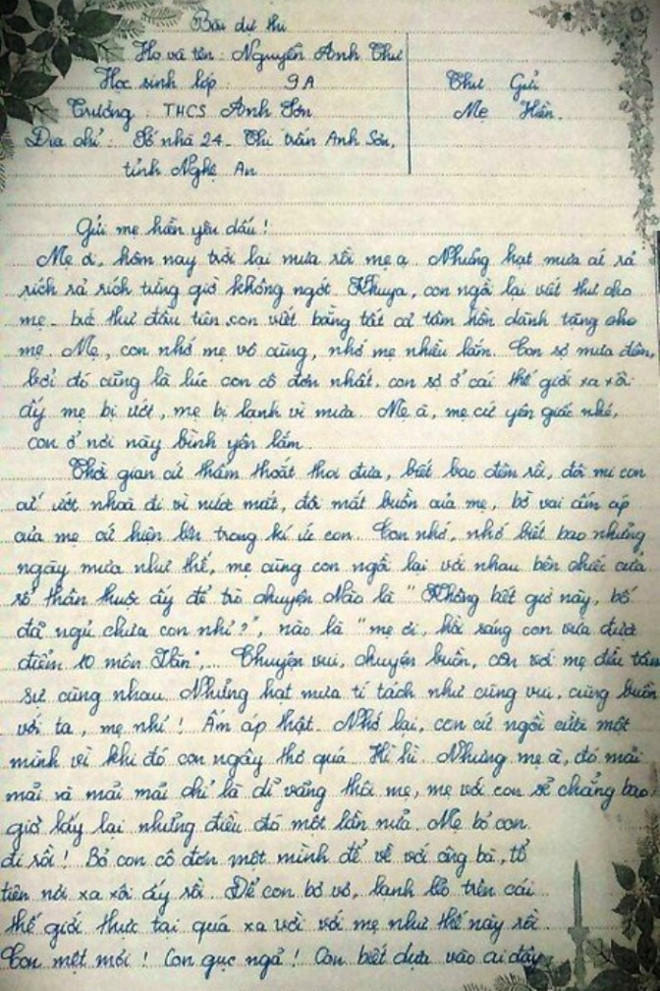 Bài dự thi
Họ và tên : Nguyễn Anh Thư
Học sinh lớp : 9A
Thư Gửi
Trường : THCS Anh Sơn
Mẹ Hiền.
Địa chỉ : Số nhà 24 - Thị trấn Anh Sơn,
tỉnh Nghệ An
Gửi mẹ hiền yêu dấu !
Mẹ ơi, hôm nay trời lại mưa rồi mẹ ạ. Những hạt mưa cứ rả
rích rả rích từng giờ không ngớt. Khuya, con ngồi lại viết thư cho
mẹ - bức thư đầu tiên con viết bằng tất cả tâm hồn dành tặng cho
mẹ. Mẹ, con nhớ mẹ vô cùng, nhớ mẹ nhiều lắm. Con sợ mưa đêm,
bởi đó cũng là lúc con cô đơn nhất, con sợ ở cái thế giới xa xôi
ấy mẹ bị ướt, mẹ bị lạnh vì mưa. Mẹ à, mẹ cứ yên giấc nhé,
con ở nơi này bình yên lắm.
Thời gian cứ thấm thoắt thoi đưa, biết bao đêm rồi, đôi mi con
cứ ướt nhoà đi vì nước mắt, đôi mắt buồn của mẹ, bờ vai ấm áp
của mẹ cứ hiện lên trong kí ức con. Con nhớ, nhớ biết bao những
ngày mưa như thế, mẹ cùng con ngồi lại với nhau bên chiếc cửa
sổ thân thuộc ấy để trò chuyện. Nào là " Không biết giờ này, bố
đã ngủ chưa con nhỉ ? ", nào là " mẹ ơi, hồi sáng con vừa được
điểm 10 môn Văn ",... Chuyện vui, chuyện buồn, con với mẹ đều tâm
sự cùng nhau. Những hạt mưa tí tách như cùng vui, cùng buồn
với ta, mẹ nhỉ ! Ấm áp thật. Nhớ lại, con cứ ngồi cười một
mình vì khi đó con ngây thơ quá. Hì hì. Nhưng mẹ à, đó mãi
mãi và mãi mãi chỉ là dĩ vãng thôi mẹ, mẹ với con sẽ chẳng bao
giờ lấy lại những điều đó một lần nữa. Mẹ bỏ con
đi rồi ! Bỏ con cô đơn một mình để về với ông bà, tổ
tiên nơi xa xôi ấy rồi. Để con bơ vơ, lạnh lẽo trên cái
thế giới thực tại quá xa vời với mẹ như thế này rồi.
Con mệt mỏi ! Con gục ngã ! Con biết dựa vào ai đây